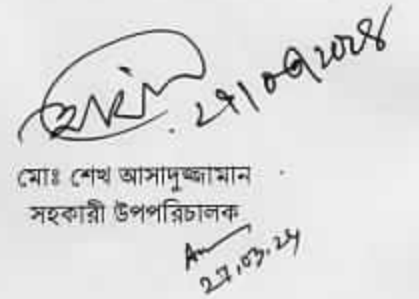 ২৭/০৩/২০২৪
মোঃ শেখ আসাদুজ্জামান
সহকারী উপপরিচালক
27.03.24